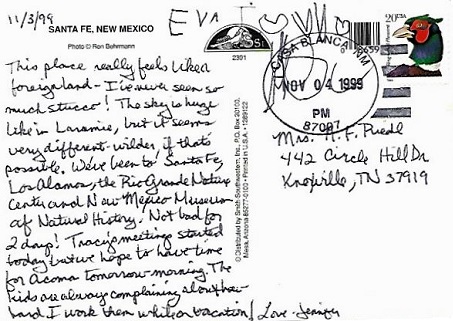 11/3/99
SANTA FE, NEW MEXICO
Photo © Ron Behrmann
This place really feels like a
foreign land - I've never seen so
much stucco! The sky is huge
like in Laramie, but it seems
very different - wilder, if that's
possible. We've been to Santa Fe,
Los Alamos, the Rio Grande Nature
Center and New Mexico Museum
of Natural History. Not bad for
2 days! Tracy's meetings started
today but we hope to have time
for Acoma tomorrow morning. The
kids are always complaining about how
hard I work them while on vacation! Love - Jennifer
EVA
2391
© Distributed by Smith Southwestern, Inc., P.O. Box 20100,
Mesa, Arizona 85277-0100 • Printed in U.S.A. •
CASA BLANCA, NM
NOV 04 1999
PM
87007
20 USA
Mrs. H. F.
442 Circle Hill Dr
Knoxville, TN 37919